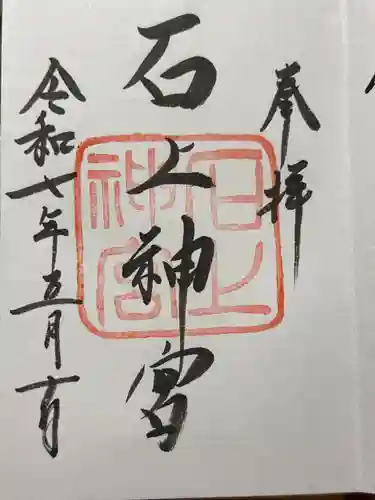 奉拝
石上神宮
石上神宮
令和七年五月十日